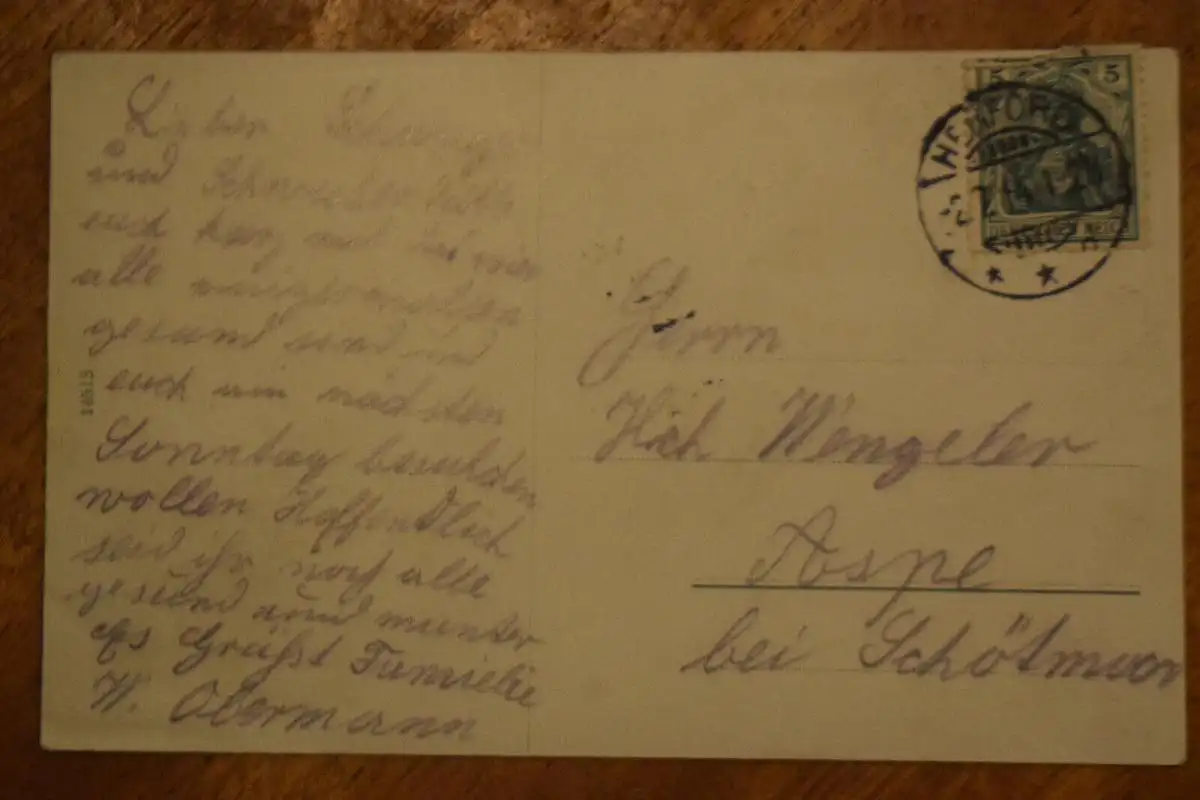 Lieber Schwager
und Schwester teile
euch kurz mit das wir
alle einigermassen
gesund sind und
euch am nächsten
Sonntag besuchen
wollen Hoffendlich
seid ihr noch alle
gesund und munter
Es Grüßt Familie
W. Obermann
16513
5 5
HERFORD
DEUTSCHES REICH
Herrn
Hch Wengeler
Aspe
bei Schötmar